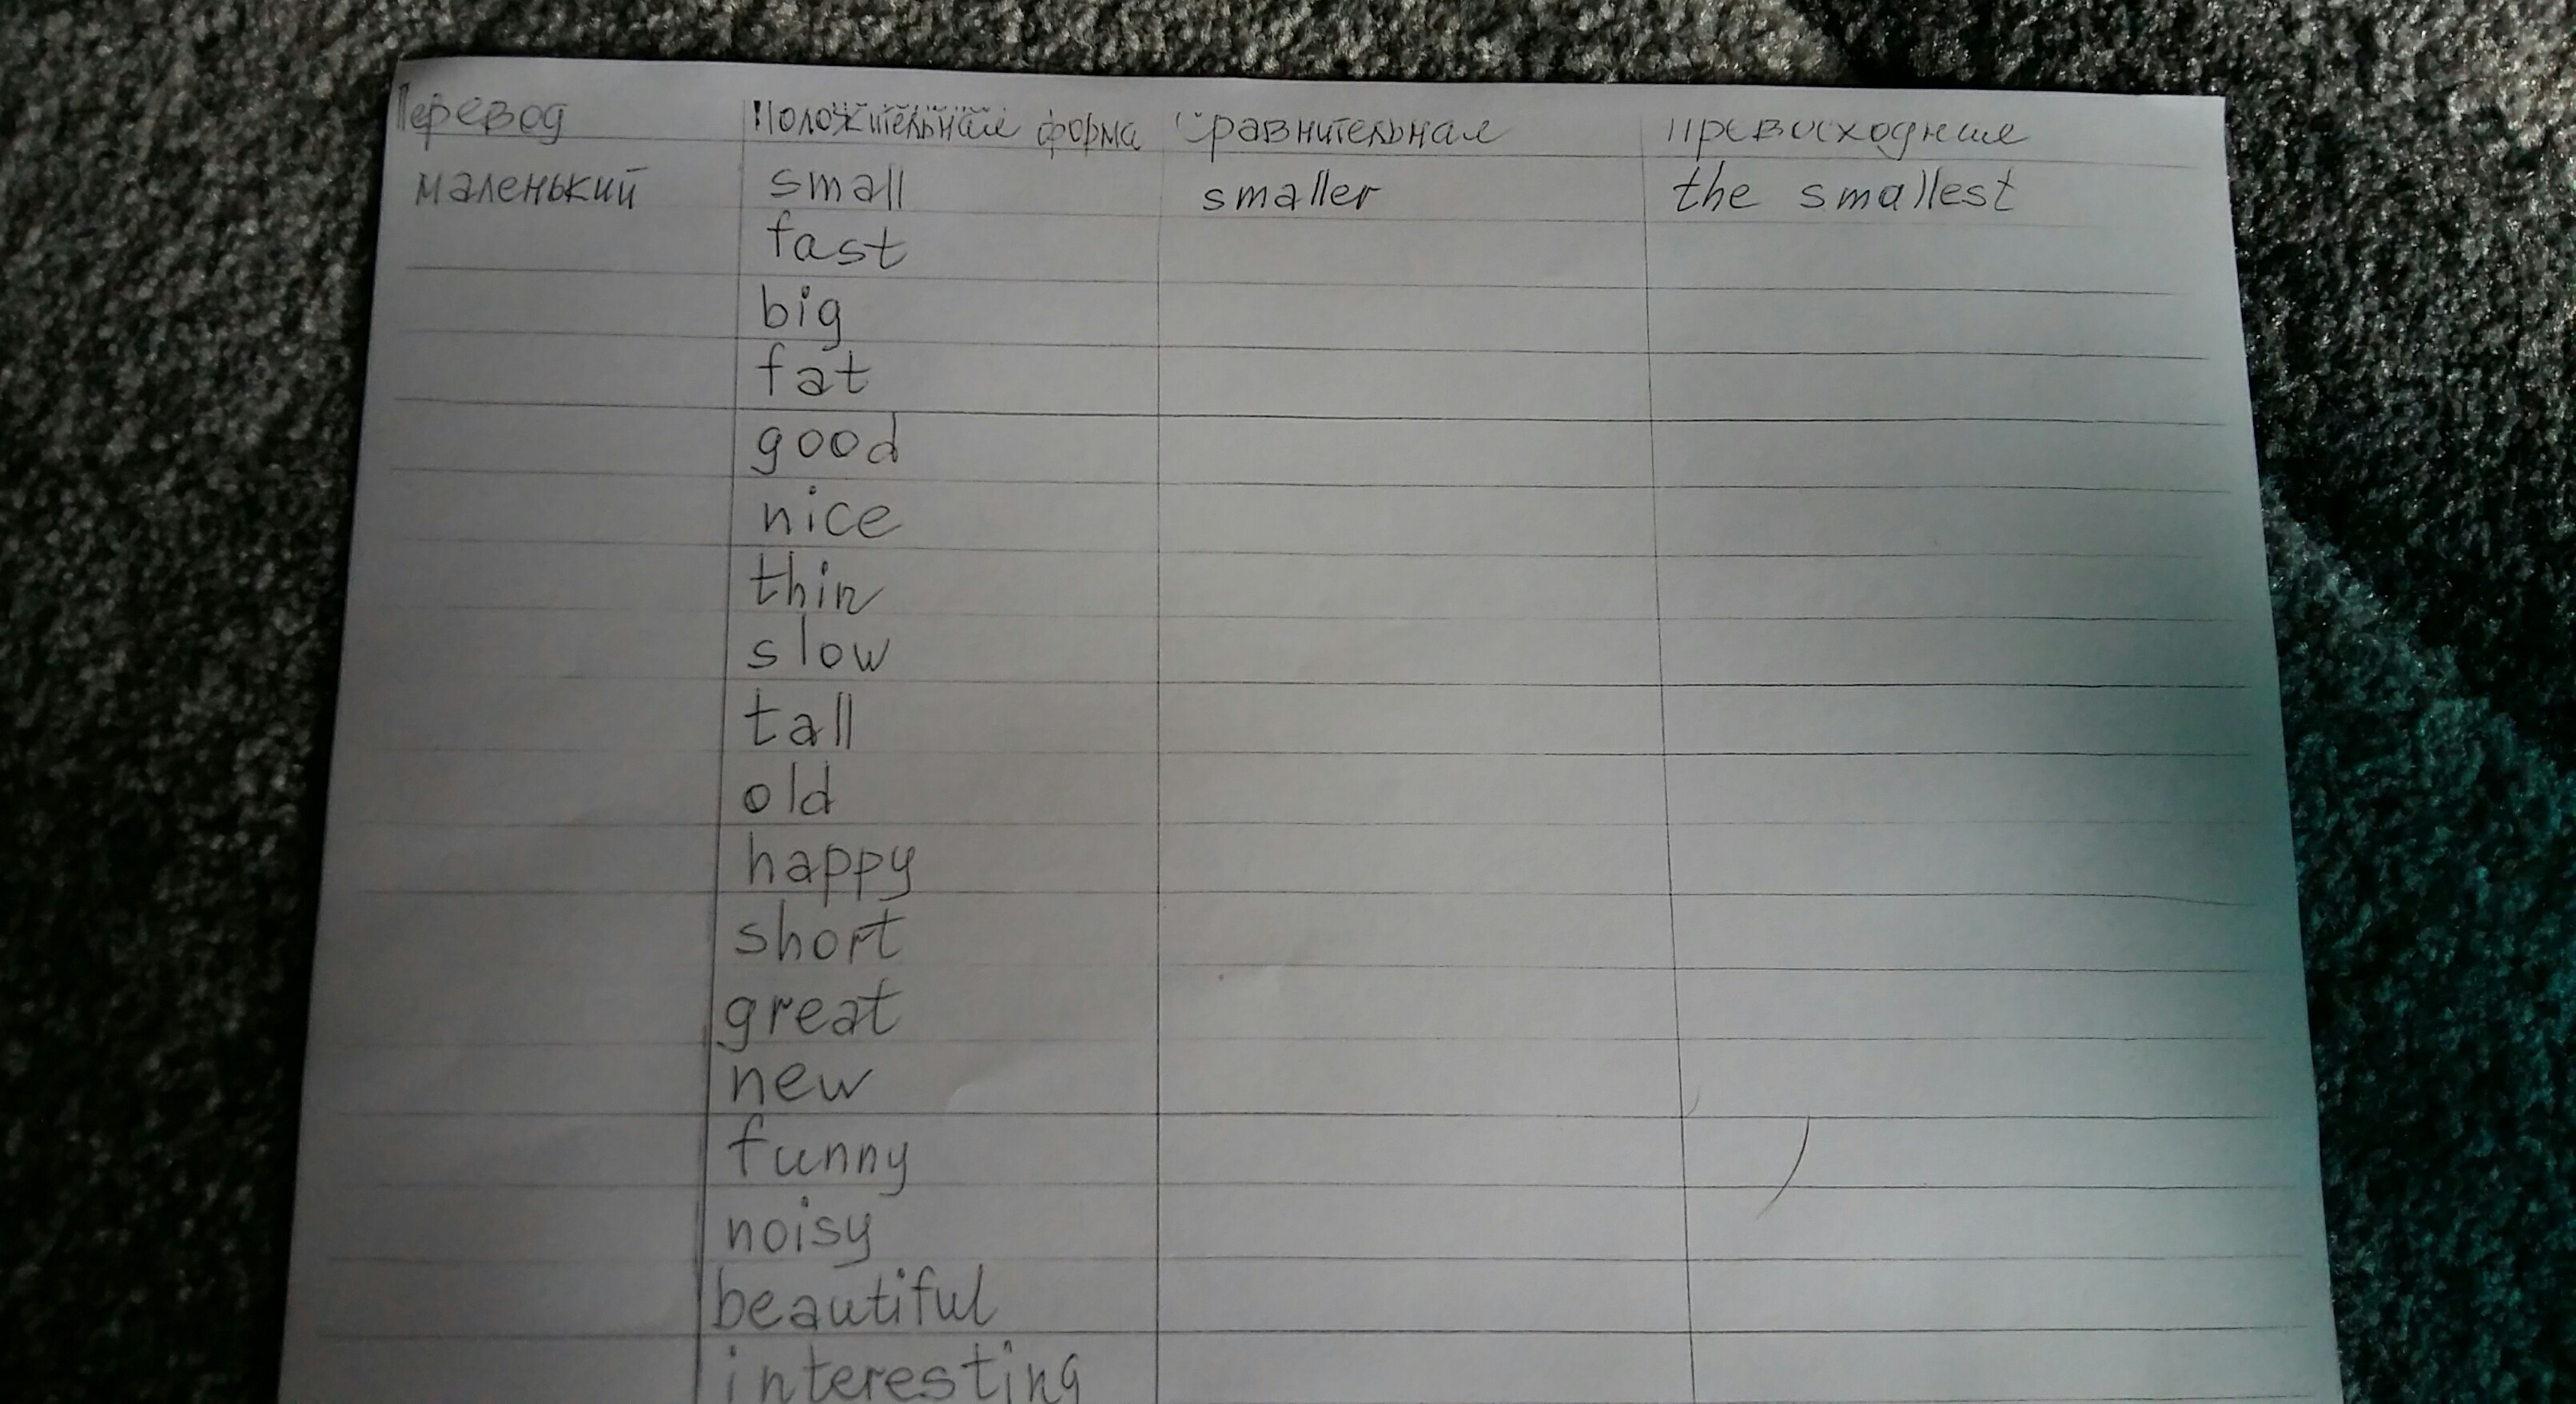 Перевод Положительная форма Сравнительная Превосходная
маленький small smaller the smallest
fast
big
fat
good
nice
thin
slow
tall
old
happy
short
great
new
funny
noisy
beautiful
interesting